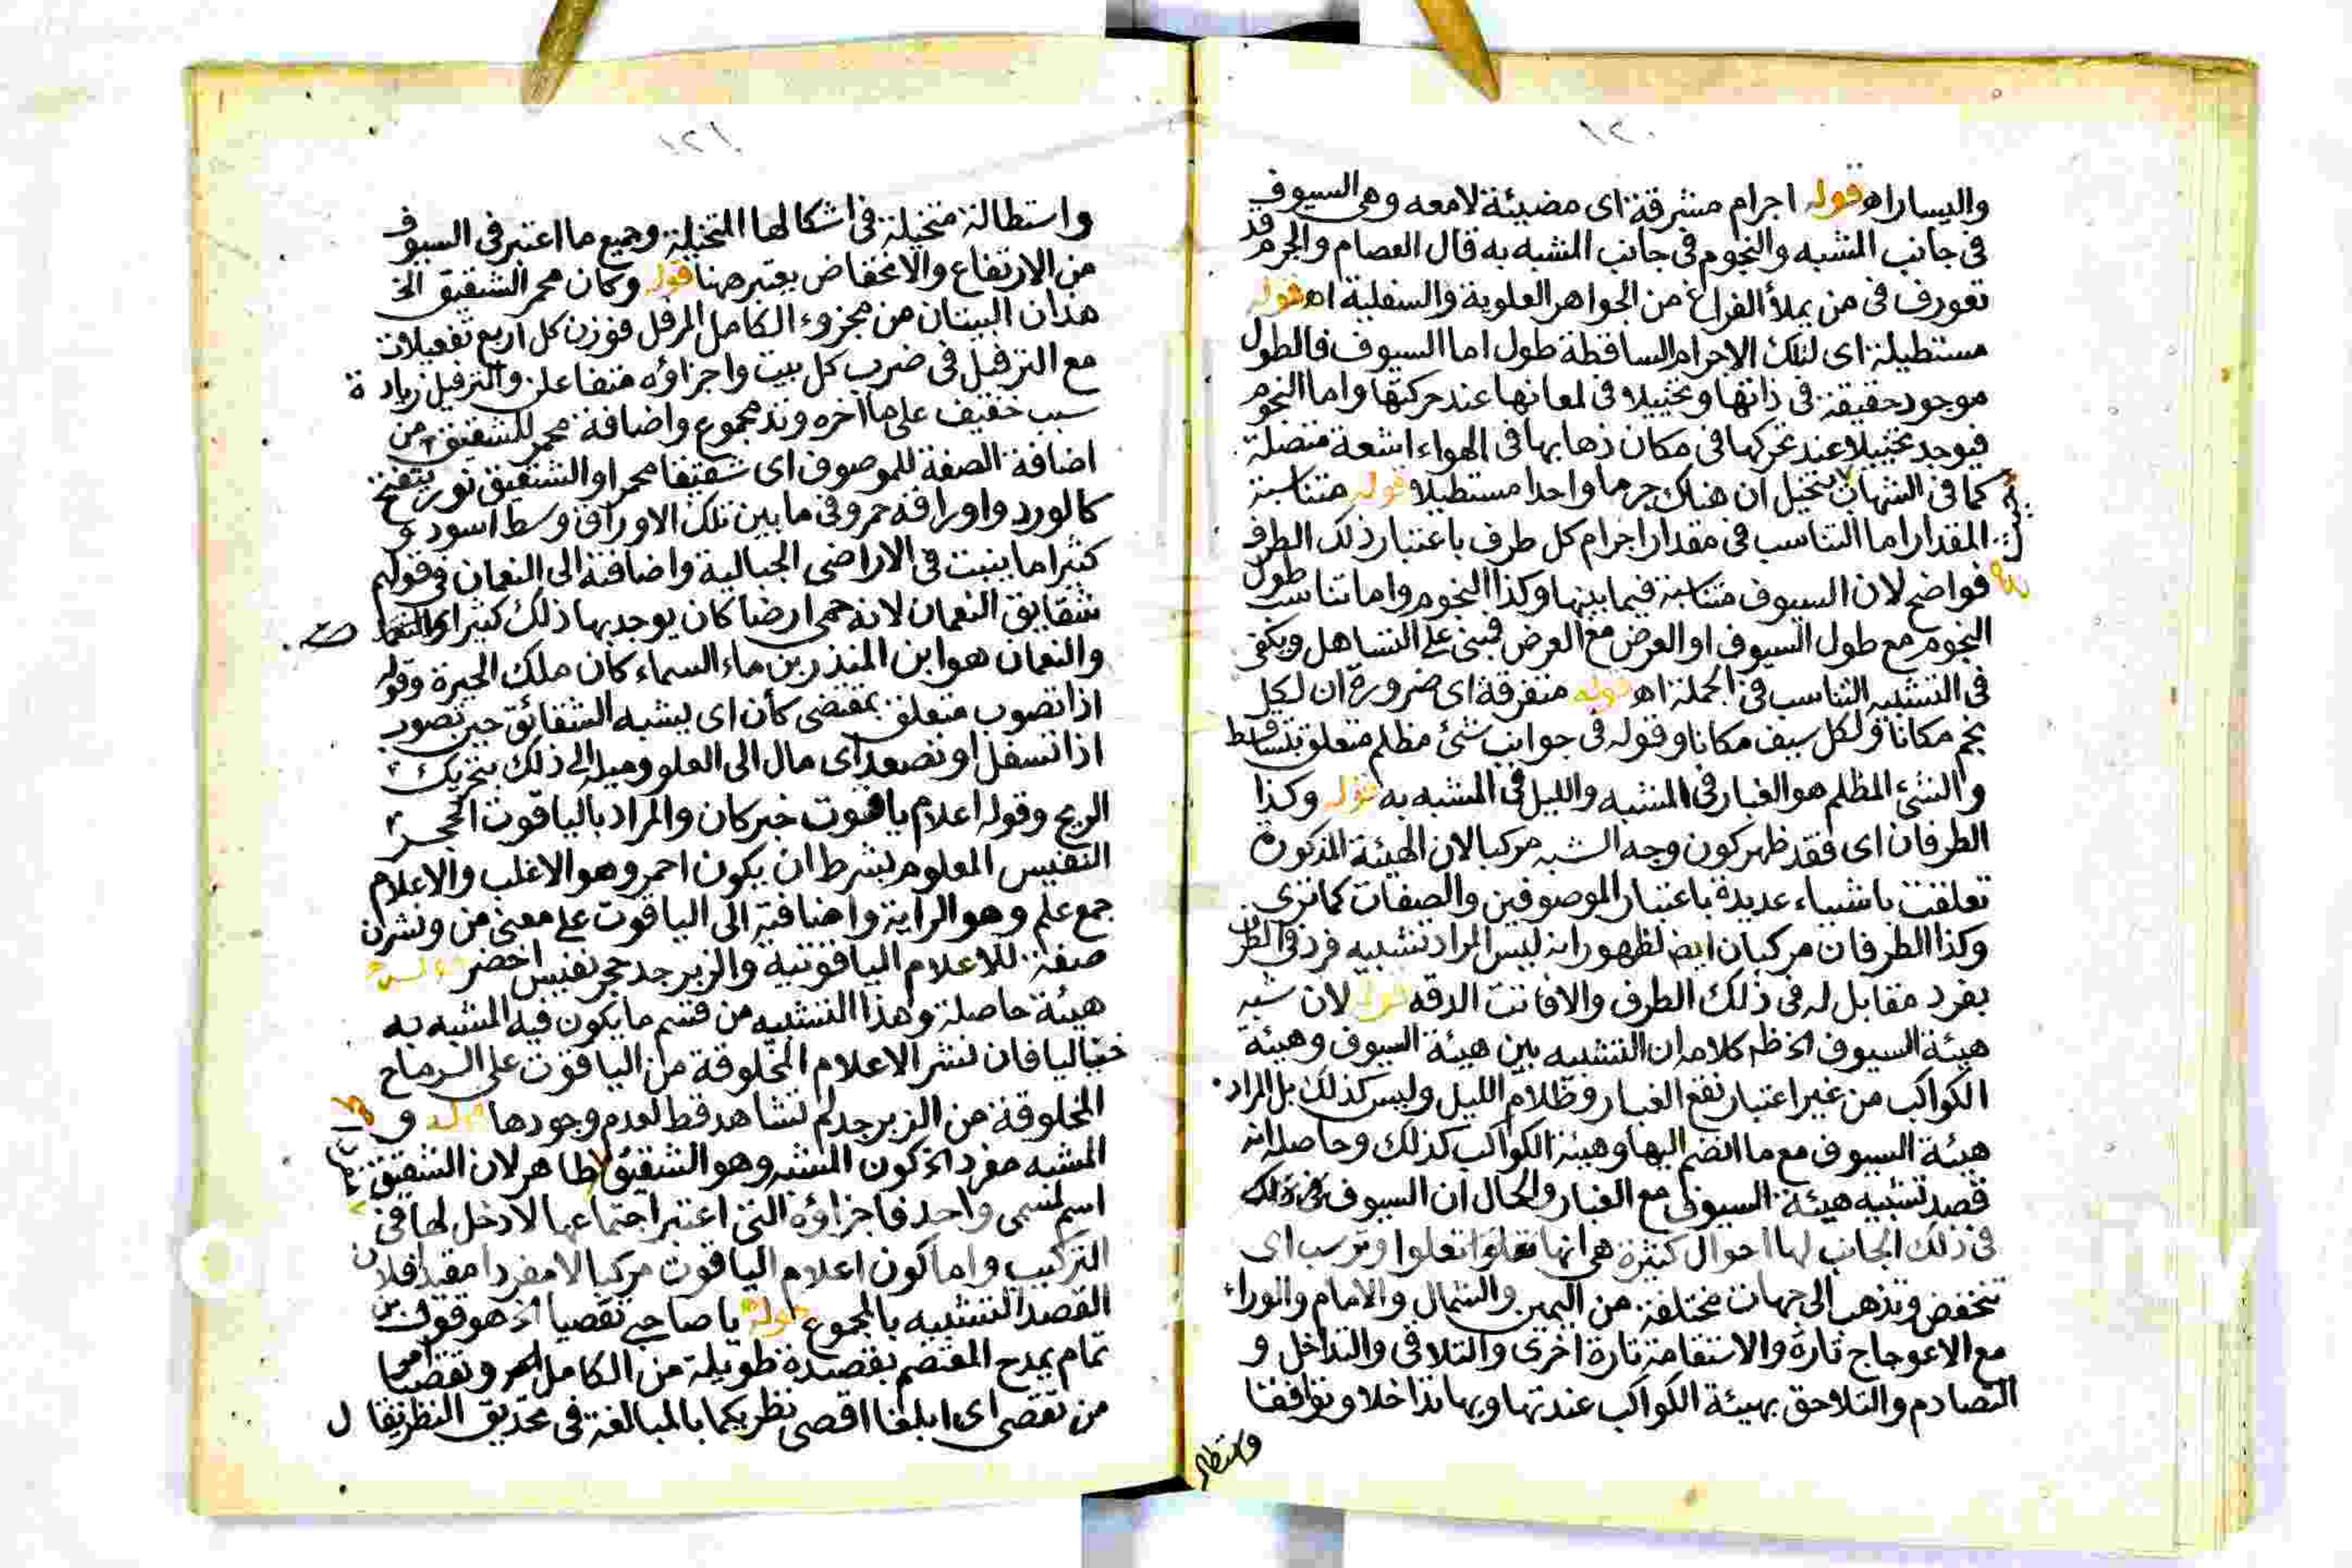 ١٢٠
واليسار اه قوله اجرام مشرقة اى مضيئة لامعه وهى السيوف
فى جانب المشبه والنجوم فى جانب المشبه به قال العصام والجرم قد
تعورف فى من يملأ الفراغ من الجواهر العلوية والسفلية اه قوله
مستطيلة اى لتلك الاجرام الساقطة طول اما السيوف فالطول
موجود حقيقة فى ذاتها وتخييلا فى لمعانها عند حركتها واما النجوم
فيوجد تخييلا عند تحركها فى مكان ذهابها فى الهواء اشعة متصلة
كما فى الشهاب يتخيل ان هناك جرما واحدا مستطيلا قوله متناسبة
المقدار اما التناسب فى مقدار اجرام كل طرف باعتبار ذلك الطرف
فواضح لان السيوف متناسبة فيما بينها وكذا النجوم واما تناسب طول
النجوم مع طول السيوف او العرض مع العرض فبنى على التساهل ويكفى
فى التشبيه التناسب فى الجملة اه قوله متفرقة اى ضرورة ان لكل
نجم مكانا ولكل سيف مكانا وقوله فى جوانب شئ مظلم متعلق بتساقط
والشئ المظلم هو الغبار فى المشبه والليل فى المشبه به قوله وكذا
الطرفان اى فقد ظهر كون وجه الشبه مركبا لان الهيئة المذكورة
تعلقت باشياء عديدة باعتبار الموصوفين والصفات كما ترى
وكذا الطرفان مركبان ايض لظهور انه ليس المراد تشبيه فرد فى الطرف
بفرد مقابل له فى ذلك الطرف والافاتت الدقه قوله لان شبه
هيئة السيوف الخ ظم كلامه ان التشبيه بين هيئة السيوف وهيئة
الكواكب من غير اعتبار نقع الغبار وظلام الليل وليس كذلك بل المراد
هيئة السيوف مع ما انضم اليها وهيئة الكواكب كذلك وحاصله انه
قصد تشبيه هيئة السيوف مع الغبار والحال ان السيوف فى ذلك
فى ذلك الجانب لها احوال كثيرة هى انها تعلوا وترسب اى
تنخفض وتذهب الى جهات مختلفة من اليمين والشمال والامام والوراء
مع الاعوجاج تارة والاستقامة تارة اخرى والتلاقى والتداخل و
التصادم والتلاحق بهيئة الكواكب عند تهاويها تداخلا وتوافقا
واستطا
١٢١
واستطالة متخيلة فى اشكالها المتخيلة وجميع ما اعتبر فى السيوف
من الارتفاع والانخفاض يعتبر هنا قوله وكان محمر الشقيق الخ
هذان البيتان من مجزوء الكامل المرفل فوزن كل اربع تفعيلات
مع الترفيل فى ضرب كل بيت واجزاؤه متفاعلن والترفيل زيادة
سبب خفيف على ما آخره وتد مجموع واضافة محمر للشقيق من
اضافة الصفة للموصوف اى شقيقا محمرا والشقيق نور يتفتح
كالورد واوراقه حمر وفى ما بين تلك الاوراق وسط اسود و
كثيرا ما ينبت فى الاراضى الجبالية واضافته الى النعمان فى قولهم
شقايق النعمان لانه حمى ارضا كان يوجد بها ذلك كثيرا
والنعمان هو ابن المنذر بن ماء السماء كان ملك الحيرة وقوله
اذا تصوب متعلق بمقتضى كأن اى يشبه الشقائق حين تصوب
اذا تسفل او تصعد اى مال الى العلو وميله الى ذلك بتحريك
الريح وقوله اعلام ياقوت خبر كان والمراد بالياقوت الحجر
النفيس المعلوم بشرط ان يكون احمر وهو الاغلب والاعلام
جمع علم وهو الراية واضافته الى الياقوت على معنى من ونشرن
صفة للاعلام الياقوتية والزبرجد حجر نفيس اخضر
هيئة حاصلة وهذا التشبيه من قسم ما يكون فيه المشبه به
خياليا فان نشر الاعلام المخلوقة من الياقوت على الرماح
المخلوقة من الزبرجد لم تشاهد قط لعدم وجودها قوله و
المشبه مفردا الخ كون المشبه وهو الشقيق ظاهر لان الشقيق
اسم لمسمى واحد فاجزاؤه التى اعتبر اجتماعها لا دخل لها فى
التركيب واما كون اعلام الياقوت مركبا لا مفردا مقيدا فلان
القصد التشبيه بالمجموع قوله يا صاحبى تقصيا الخ هو قول بن
تمام يمدح المعتصم بقصيدة طويلة من الكامل وتقصيا
من تقصى اى ابلغا اقصى نظريكما بالمبالغة فى تحديق النظر يقال